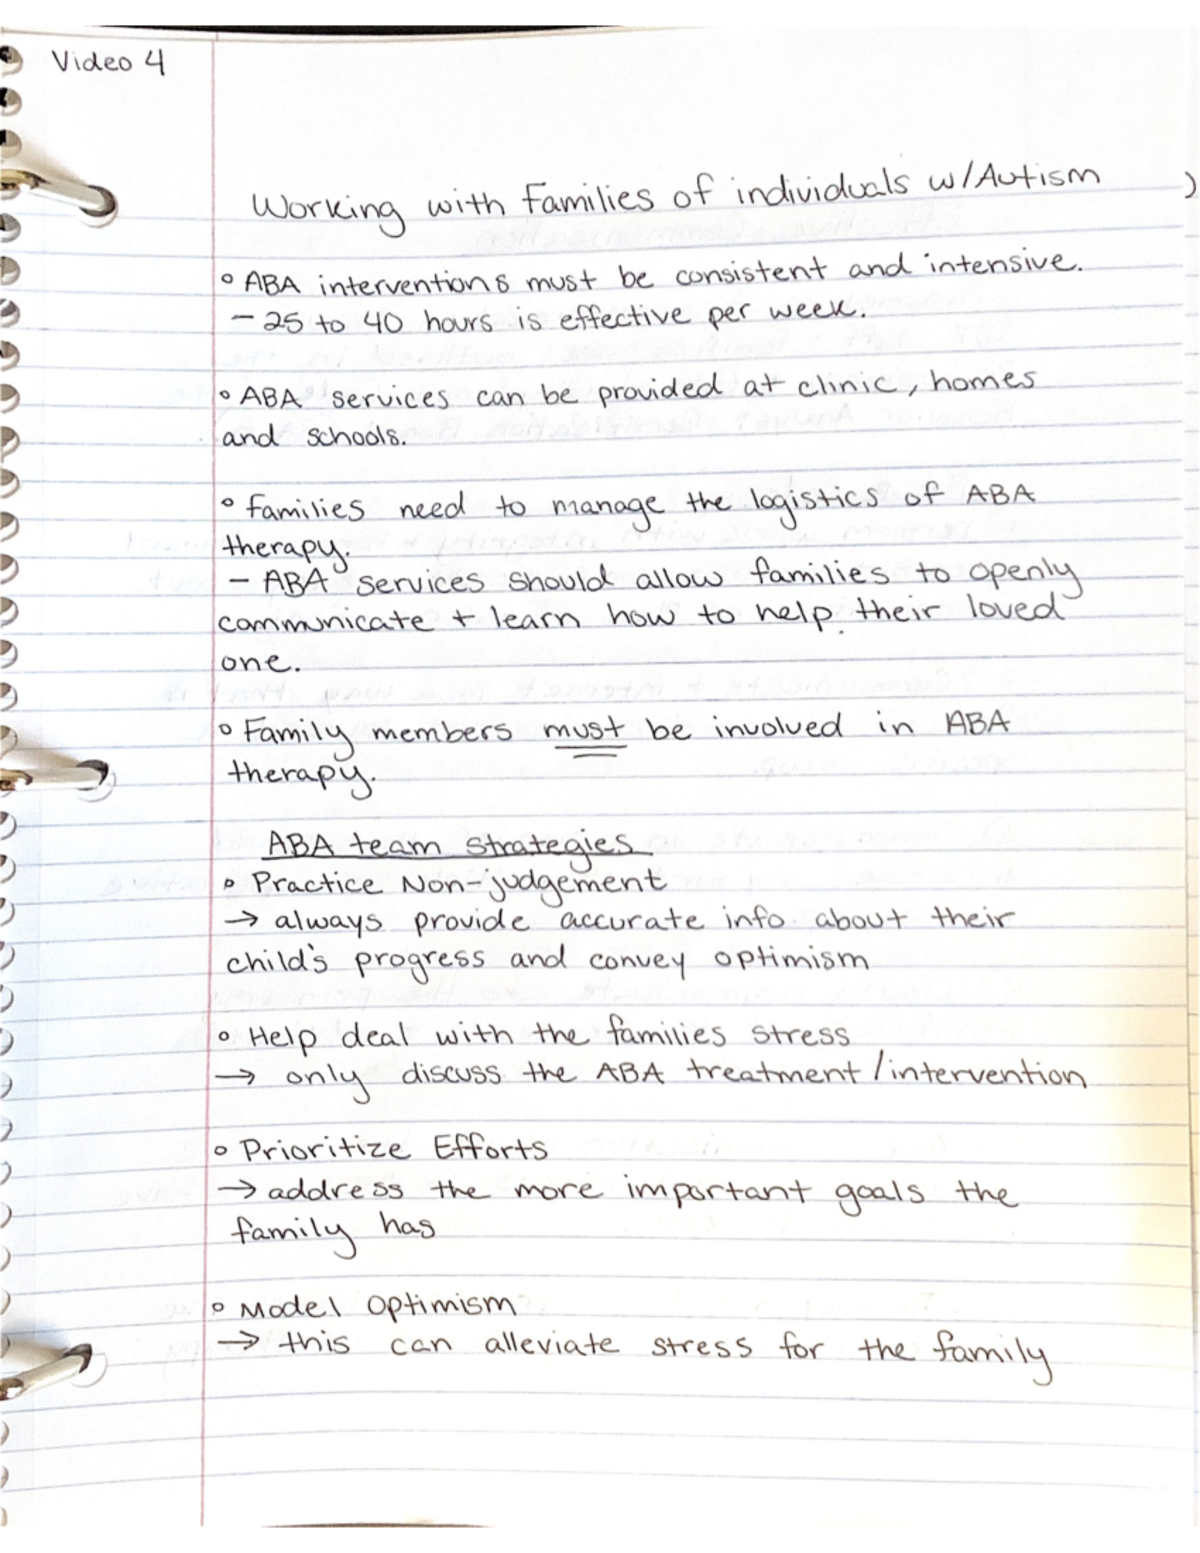 Video 4
Working with Families of individuals w/Autism
° ABA interventions must be consistent and intensive.
- 25 to 40 hours is effective per week.
° ABA services can be provided at clinic, homes
and schools.
° Families need to manage the logistics of ABA
therapy.
- ABA services should allow families to openly
communicate + learn how to help their loved
one.
° Family members must be involved in ABA
therapy.
ABA team strategies
° Practice Non-judgement
→ always provide accurate info about their
child's progress and convey optimism
° Help deal with the families stress
→ only discuss the ABA treatment/intervention
° Prioritize Efforts
→ address the more important goals the
family has
° Model Optimism
→ this can alleviate stress for the family